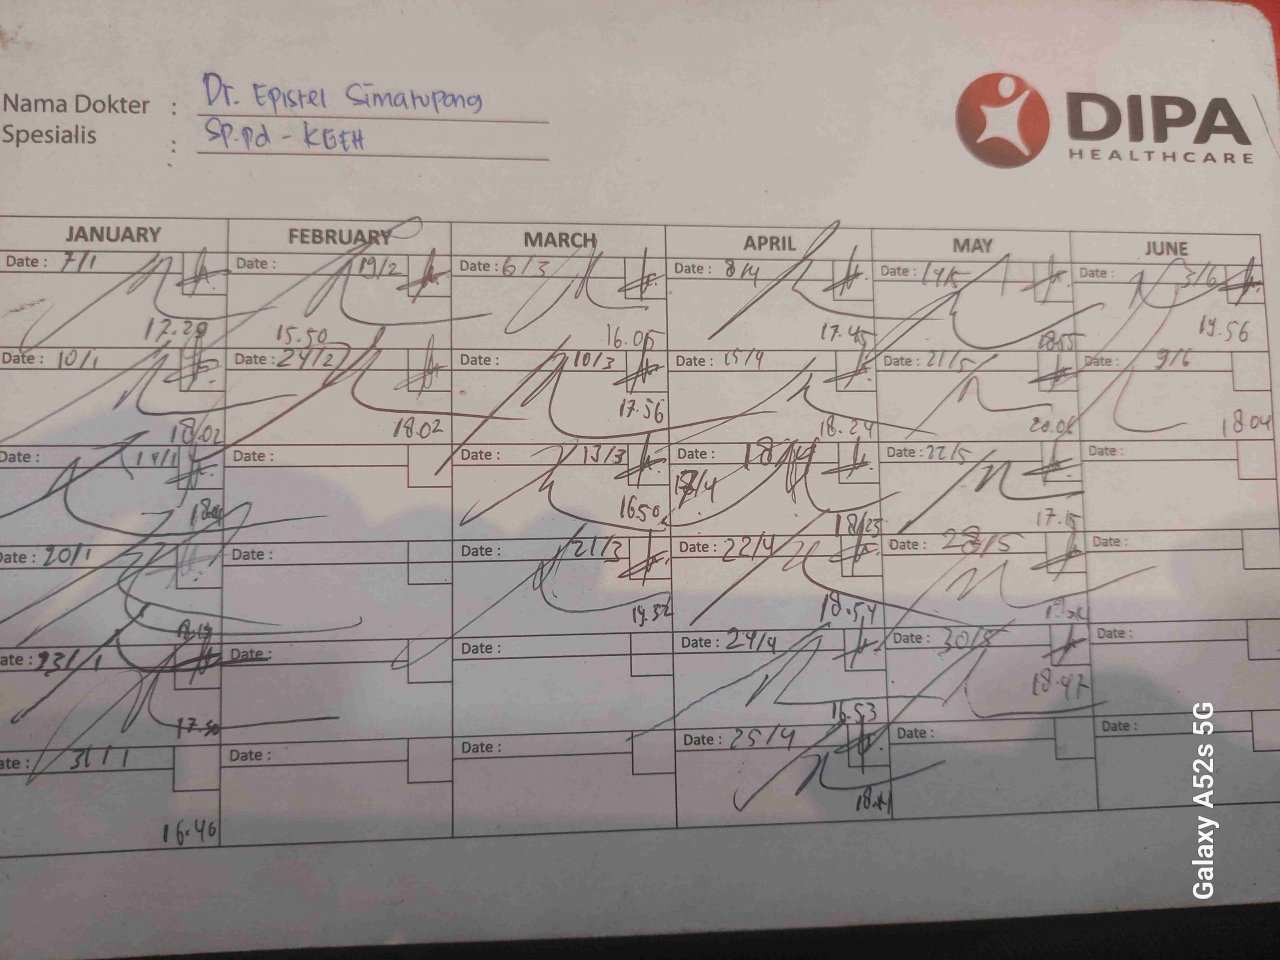 Nama Dokter : Dr. Epistel Simatupang
Spesialis : Sp.pd - KGEH
DIPA
HEALTHCARE
JANUARY FEBRUARY MARCH APRIL MAY JUNE
Date : 7/1 Date : 19/2 Date : 6/3 Date : 8/4 Date : Date : 3/6
15.50 16.05 17.45 19.56
Date : 10/1 Date : 24/2 Date : 10/3 Date : 15/4 Date : 21/5 Date : 9/6
18.02 18.02 17.56 18.24 18.04
Date : 14/1 Date : Date : 13/3 Date : 18/4 Date : 22/5 Date :
17/4
16.50 18.25
Date : 20/1 Date : Date : 21/3 Date : 22/4 Date : 28/5 Date :
19.32 18.54
Date : 23/1 Date : Date : Date : 24/4 Date : 30/5 Date :
17.50 16.53 18.47
Date : 31/1 Date : Date : Date : 25/4 Date : Date :
16.46
Galaxy A52s 5G